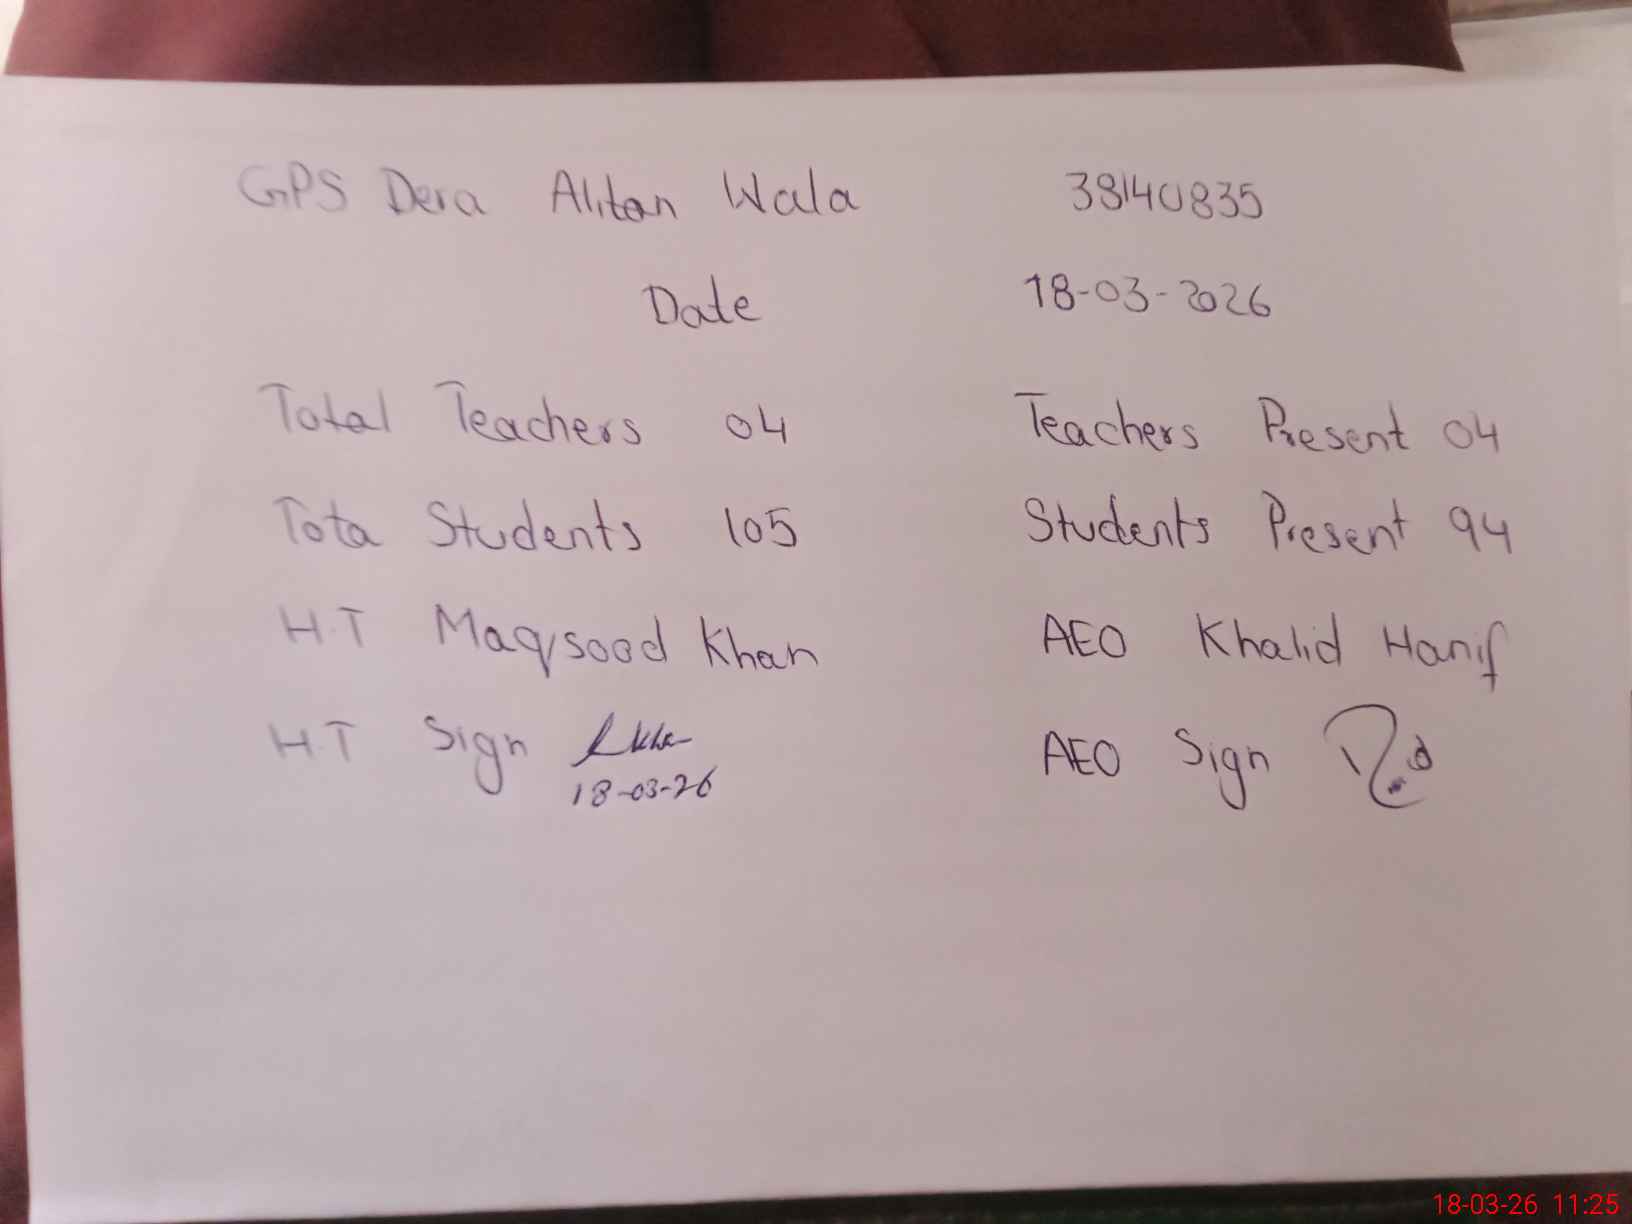 GPS Dera Alitan Wala 38140835
Date 18-03-2026
Total Teachers 04 Teachers Present 04
Tota Students 105 Students Present 94
H.T Maqsood Khan AEO Khalid Hanif
H.T Sign AEO Sign
18-03-26
18-03-26 11:25